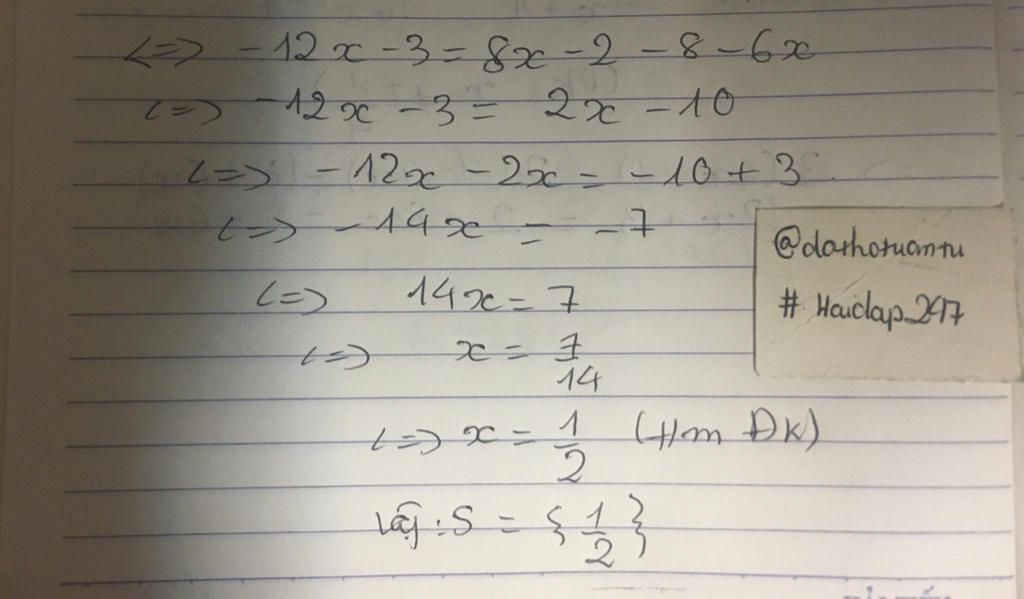 <=> -12x - 3 = 8x - 2 - 8 - 6x
<=> -12x - 3 = 2x - 10
<=> -12x - 2x = -10 + 3
<=> -14x = -7
<=> 14x = 7
<=> x = 7/14
<=> x = 1/2 (t/m ĐK)
Vậy : S = { 1/2 }
# Hoidap_247